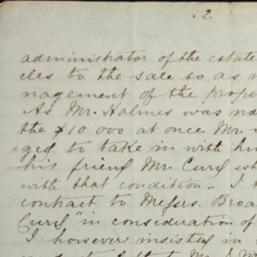 . 2.
administrator of the estate
cles to the sale so as
nagement of the prope
As Mr. Holmes was no
the $10 000 at once Mr.
ged to take in with hi
his friend Mr. Curd wh
with that condition – I
contract to Messrs. Broa
Curd "in consideration of
I however insisted in